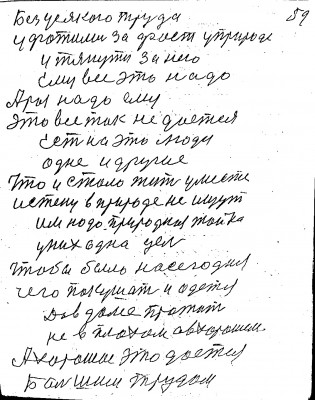 59
Без уся кого труда
у фотили за рости у природе
и тянути за него
Ему все это надо
Ары надо ему
Это все так не дается
Ест на это люди
одне и другие
Что и стало жит уместе
истену в природе не ищут
им надо природная тайна
у них одна цел
Чтобы было на сегодня
чего покушат и одется
в доме прожат
не в плохом а в хорошем
А хорошое это дается
Балшим трудом